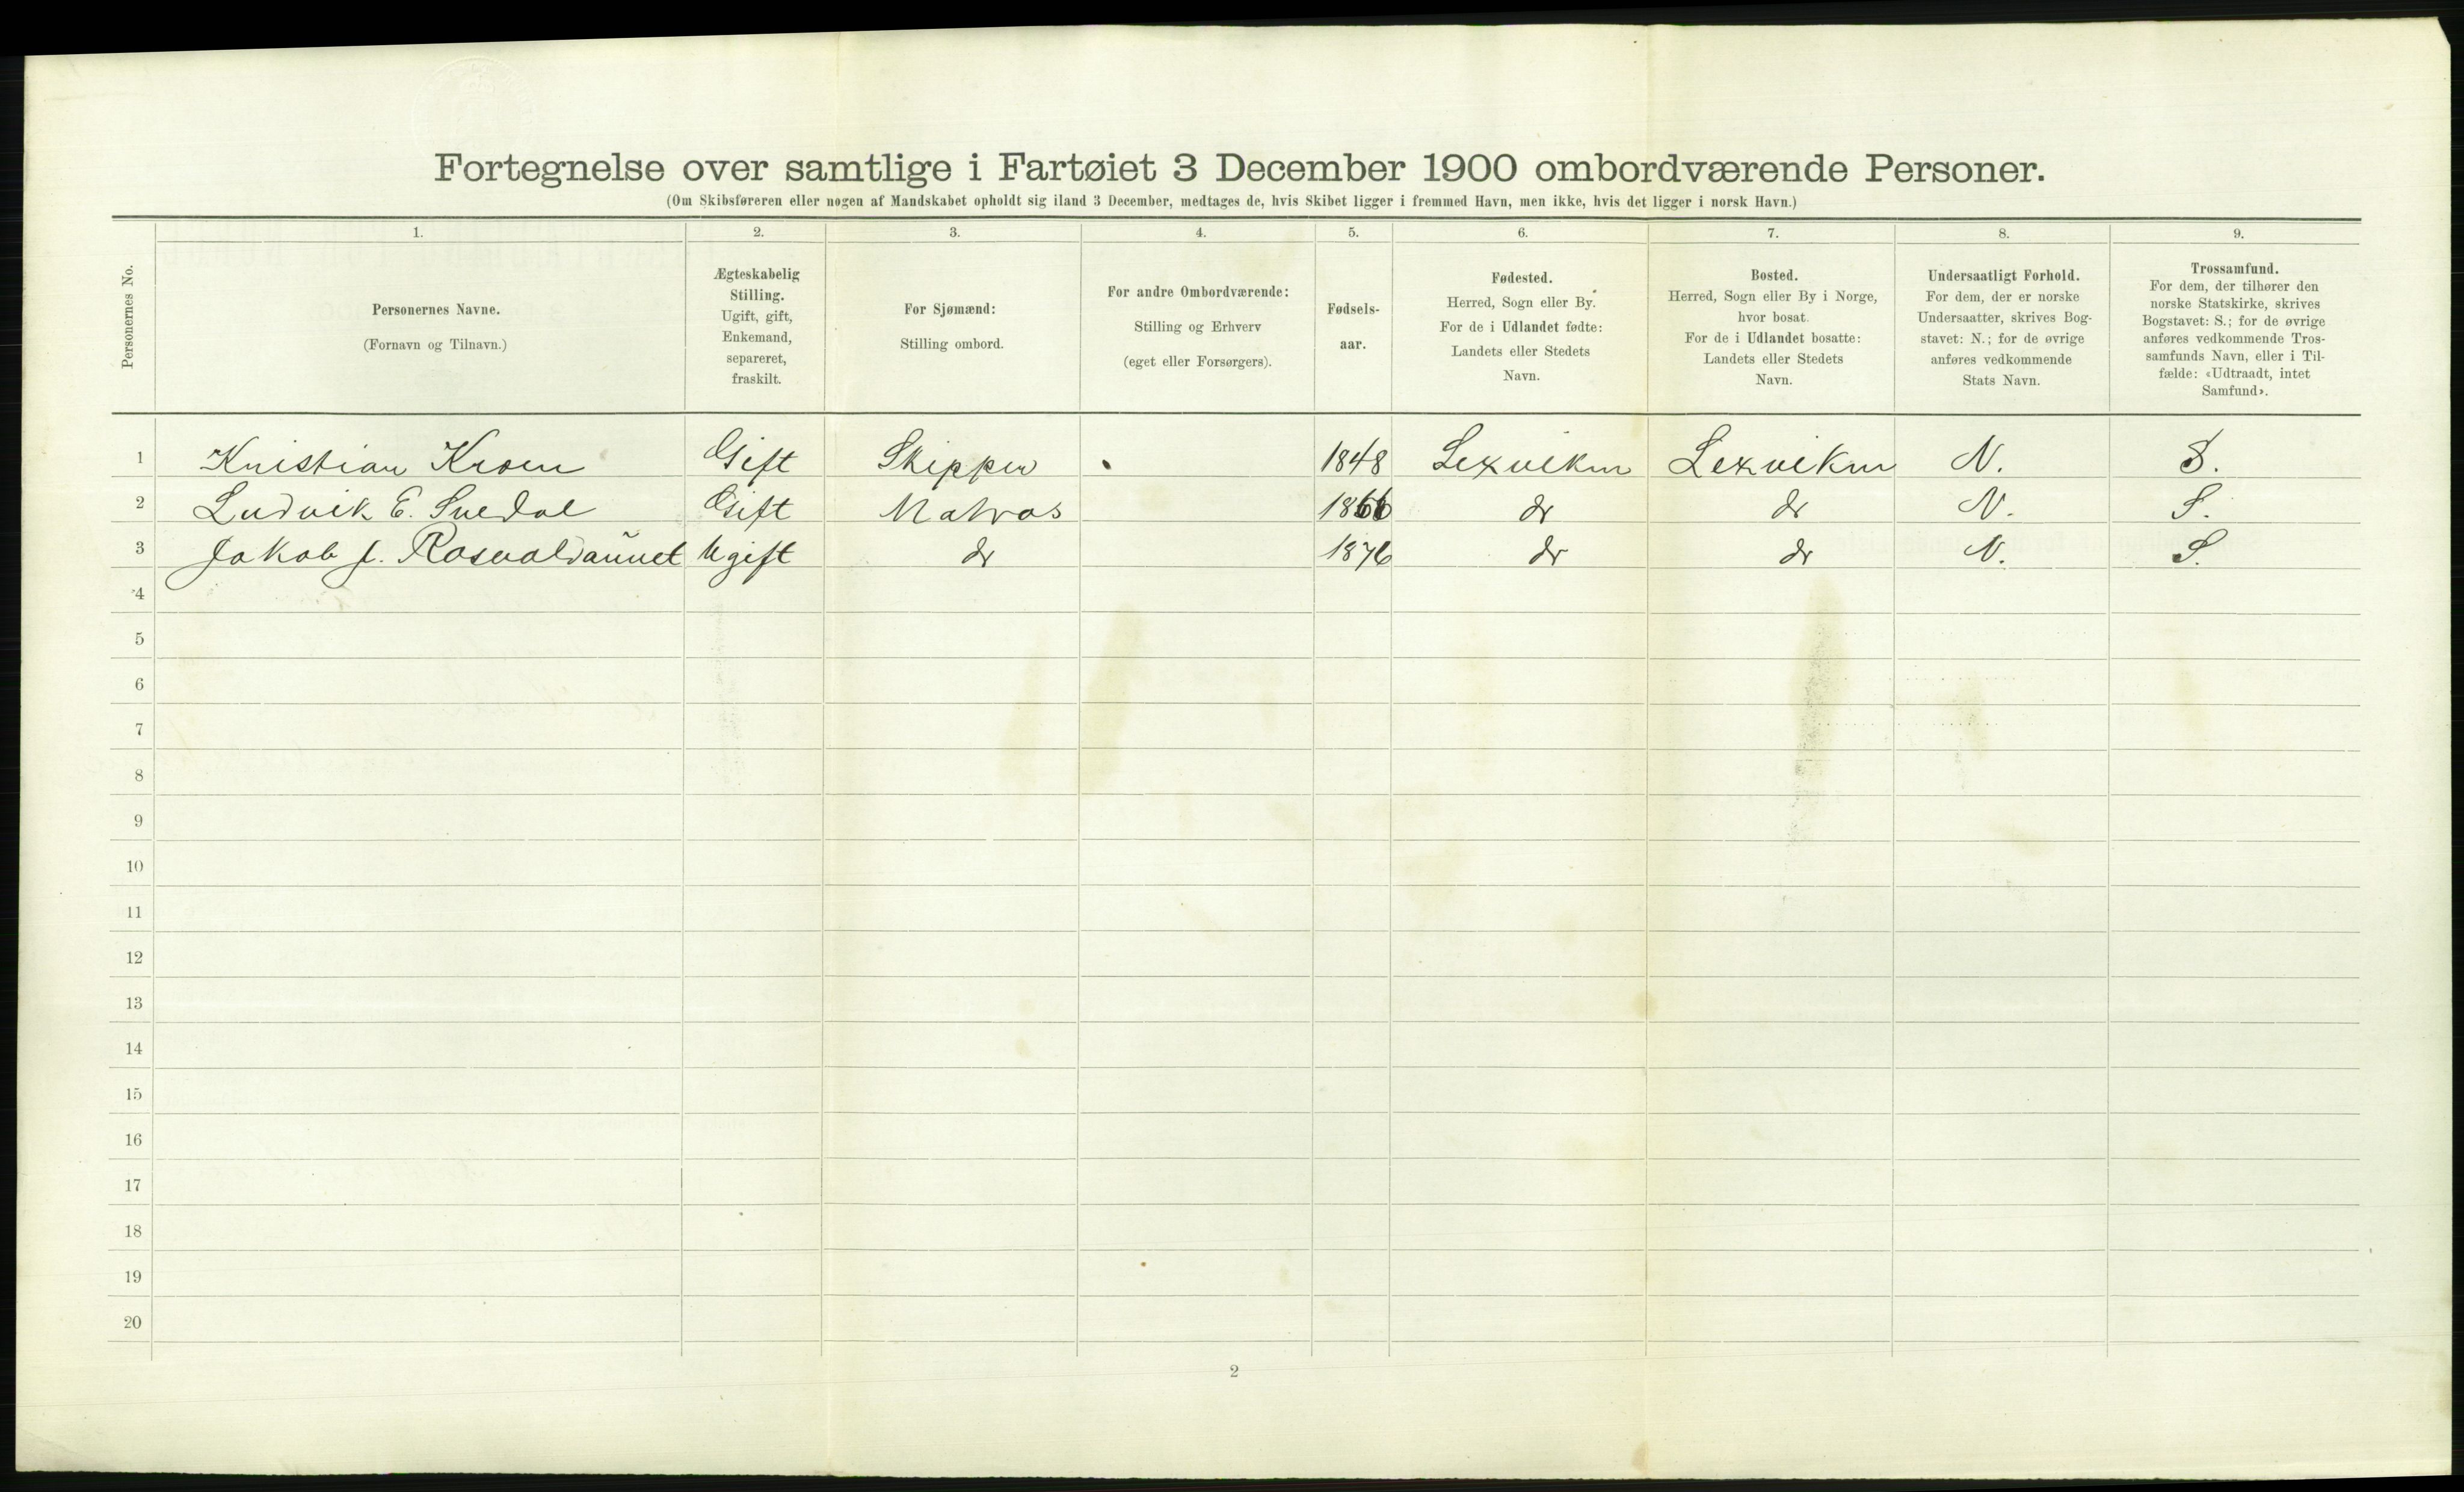 Fortegnelse over samtlige i Fartøiet 3 December 1900 ombordværende Personer.
(Om Skibsføreren eller nogen af Mandskabet opholdt sig iland 3 December, medtages de, hvis Skibet ligger i fremmed Havn, men ikke, hvis det ligger i norsk Havn.)
Personernes No.
1. 2. 3. 4. 5. 6. 7. 8. 9.
Personernes Navne.
(Fornavn og Tilnavn.)
Ægteskabelig
Stilling.
Ugift, gift,
Enkemand,
separeret,
fraskilt.
For Sjømænd:
Stilling ombord.
For andre Ombordværende:
Stilling og Erhverv
(eget eller Forsørgers).
Fødsels-
aar.
Fødested.
Herred, Sogn eller By.
For de i Udlandet fødte:
Landets eller Stedets
Navn.
Bosted.
Herred, Sogn eller By i Norge,
hvor bosat.
For de i Udlandet bosatte:
Landets eller Stedets
Navn.
Undersaatligt Forhold.
For dem, der er norske
Undersaatter, skrives Bog-
stavet: N.; for de øvrige
anføres vedkommende
Stats Navn.
Trossamfund.
For dem, der tilhører den
norske Statskirke, skrives
Bogstavet: S.; for de øvrige
anføres vedkommende Tros-
samfunds Navn, eller i Til-
fælde: «Udtraadt, intet
Samfund».
1 Kristian Kroen Gift Skipper 1848 Lexviken Lexviken N. S.
2 Ludvik E. Suedal Gift Matros 1866 dr dr N. S.
3 Jakob J. Rosvoldaunet Ugift dr 1876 dr dr N. S.
4
5
6
7
8
9
10
11
12
13
14
15
16
17
18
19
20
2